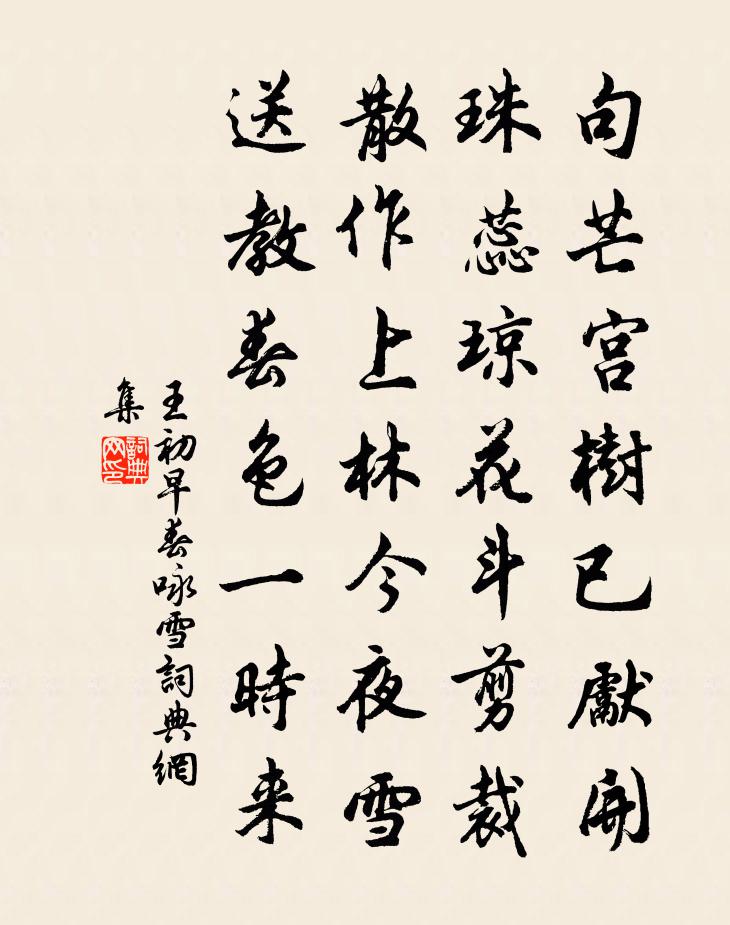 句芒宫樹已獻開
珠蕊琼花斗剪裁
散作上林今夜雪
送教春色一時来
王初早春咏雪詞典網
集
詞典
网印